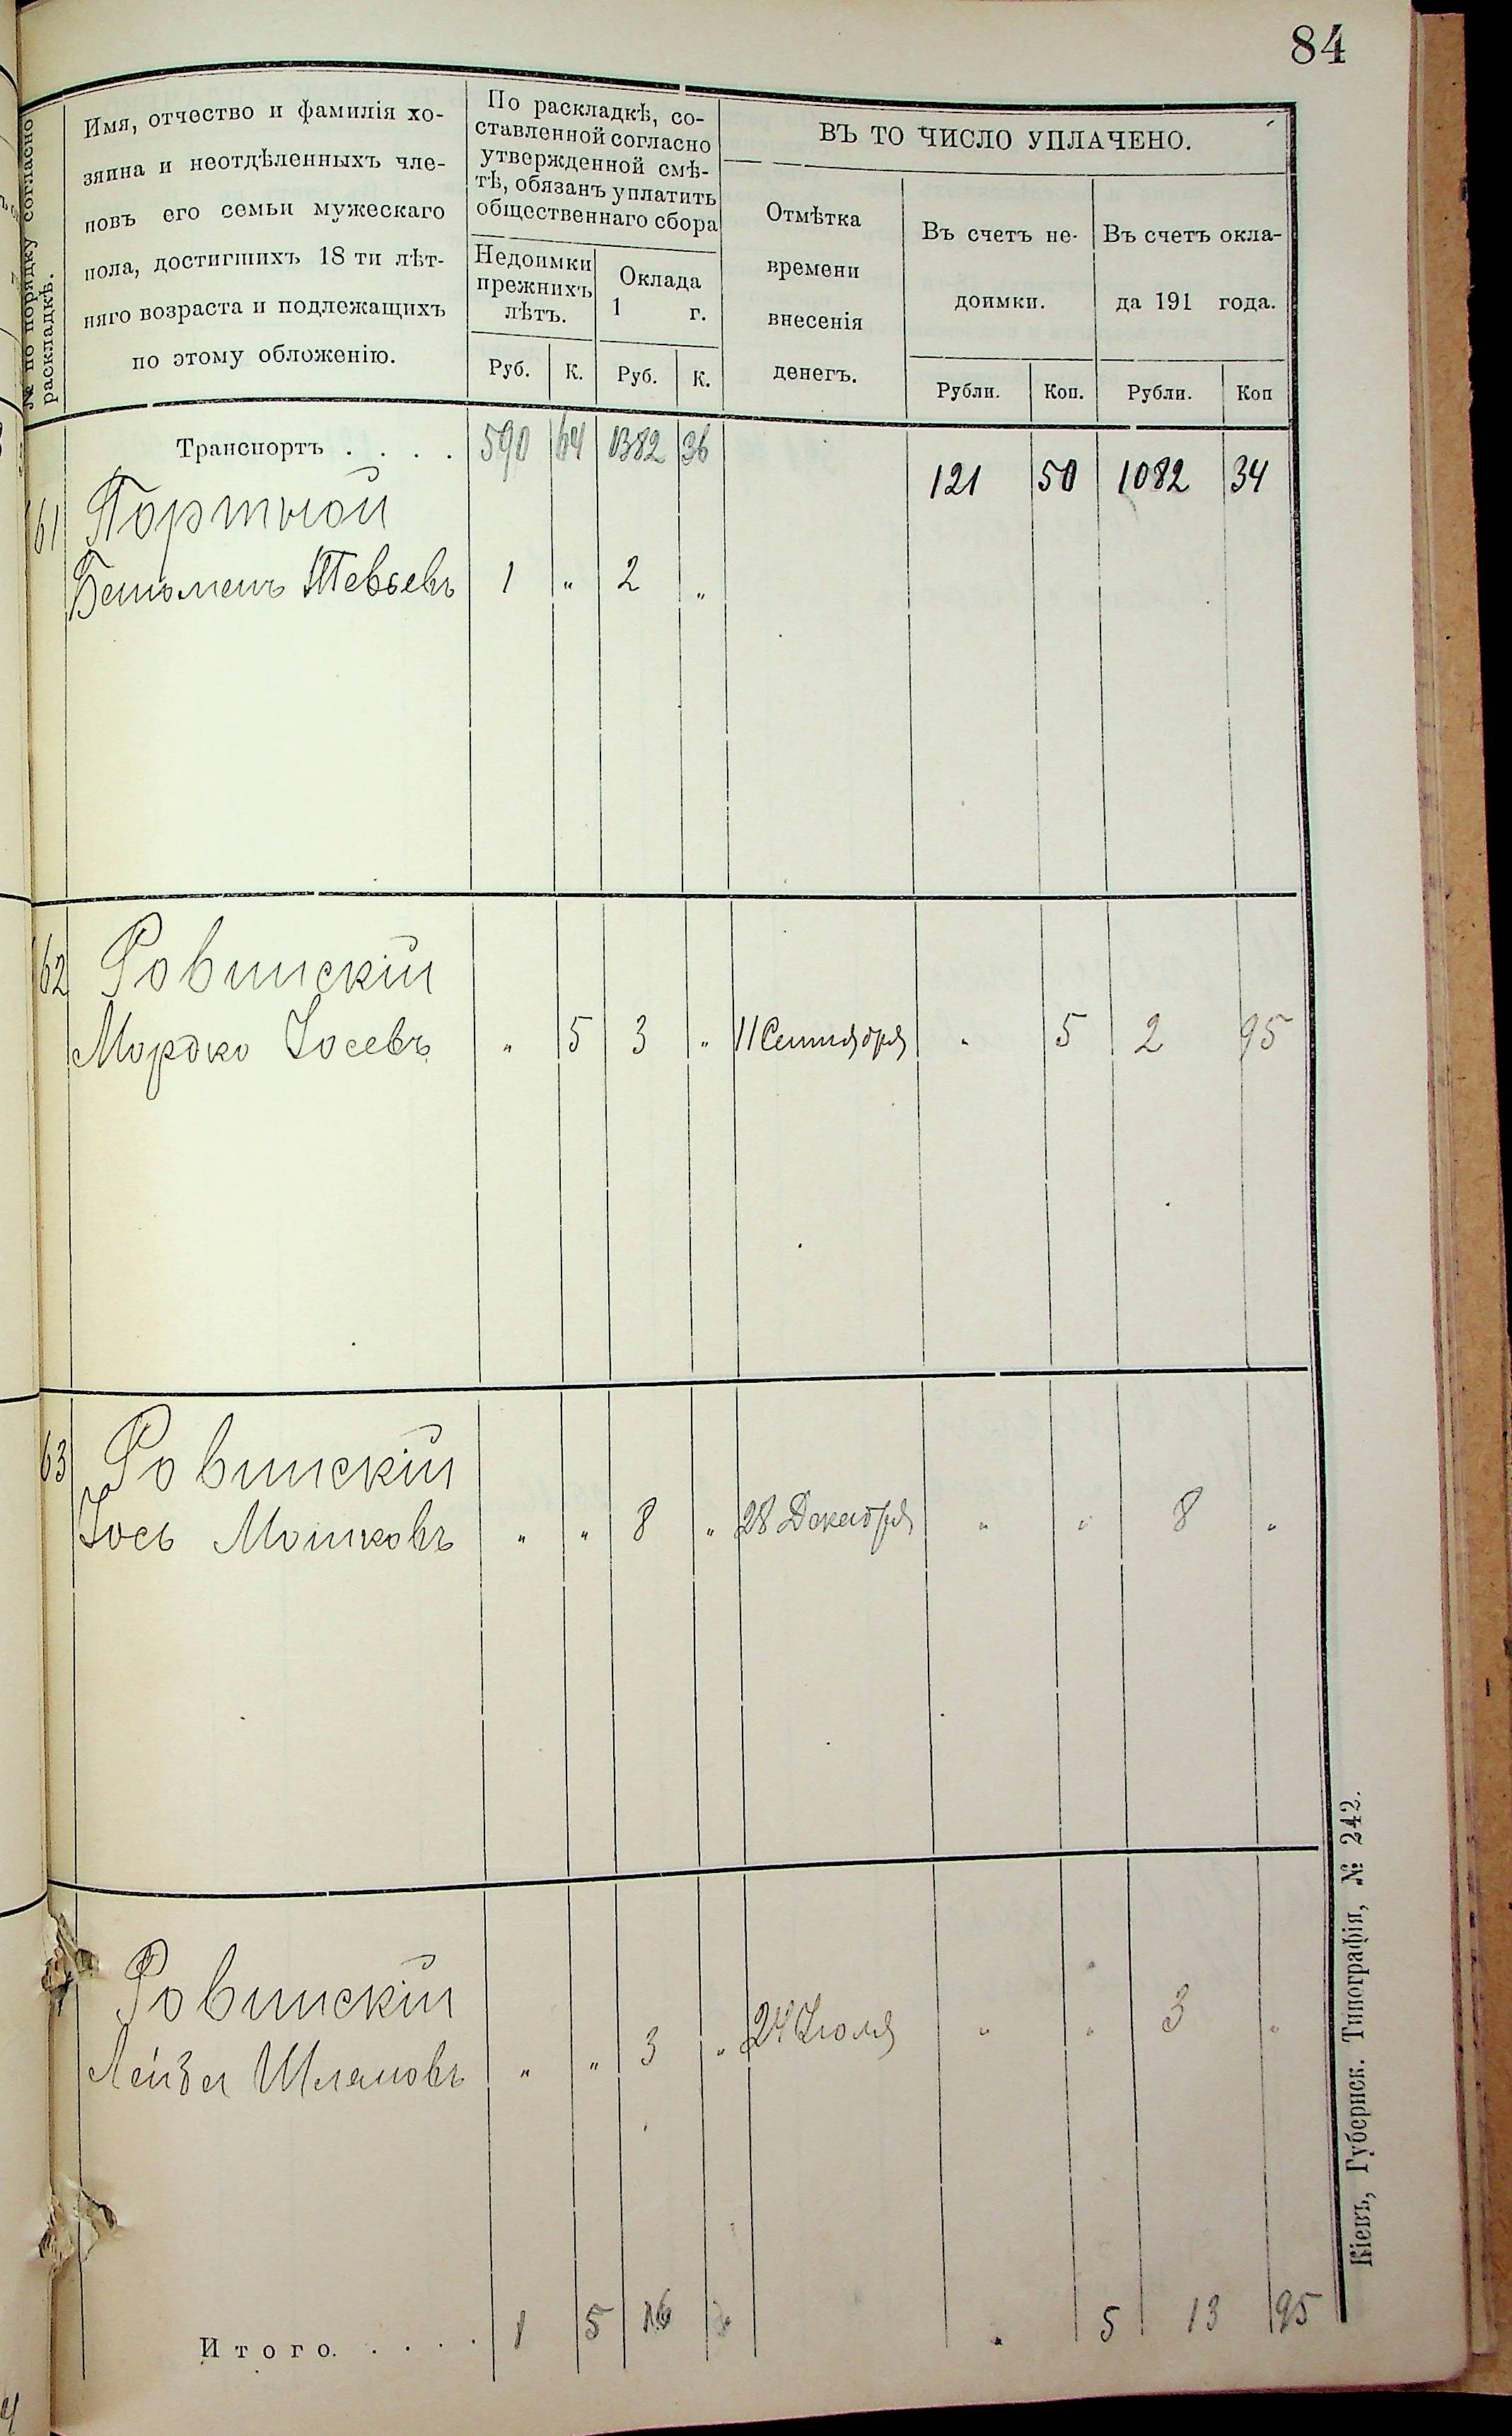 84
№ по порядку согласно
раскладкѣ.
Имя, отчество и фамилія хо-
зяина и неотдѣленныхъ чле-
новъ его семьи мужескаго
пола, достигшихъ 18 ти лѣт-
няго возраста и подлежащихъ
по этому обложенію.
По раскладкѣ, со-
ставленной согласно
утвержденной смѣ-
тѣ, обязанъ уплатить
общественнаго сбора
Недоимки
прежнихъ
лѣтъ.
Оклада
1 г.
Руб. К. Руб. К.
ВЪ ТО ЧИСЛО УПЛАЧЕНО.
Отмѣтка
времени
внесенія
денегъ.
Въ счетъ не-
доимки.
Въ счетъ окла-
да 191 года.
Рубли. Коп. Рубли. Коп
Транспортъ . . . . 590 64 1382 36 121 50 1082 34
61 Портной
Беньоменъ Тевьевъ 1 " 2 "
62 Ровинскій
Мордко Іосевъ " 5 3 " 11 Сентября " 5 2 95
63 Ровинскій
Іось Мошковъ " " 8 " 28 Декабря " " 8 "
Ровинскій
Лейзер Шлемовъ " " 3 " 24 Іюля " " 3 "
Итого. . . . . 1 5 16 " " 5 13 95
Кіевъ, Губернск. Типографія, № 242.